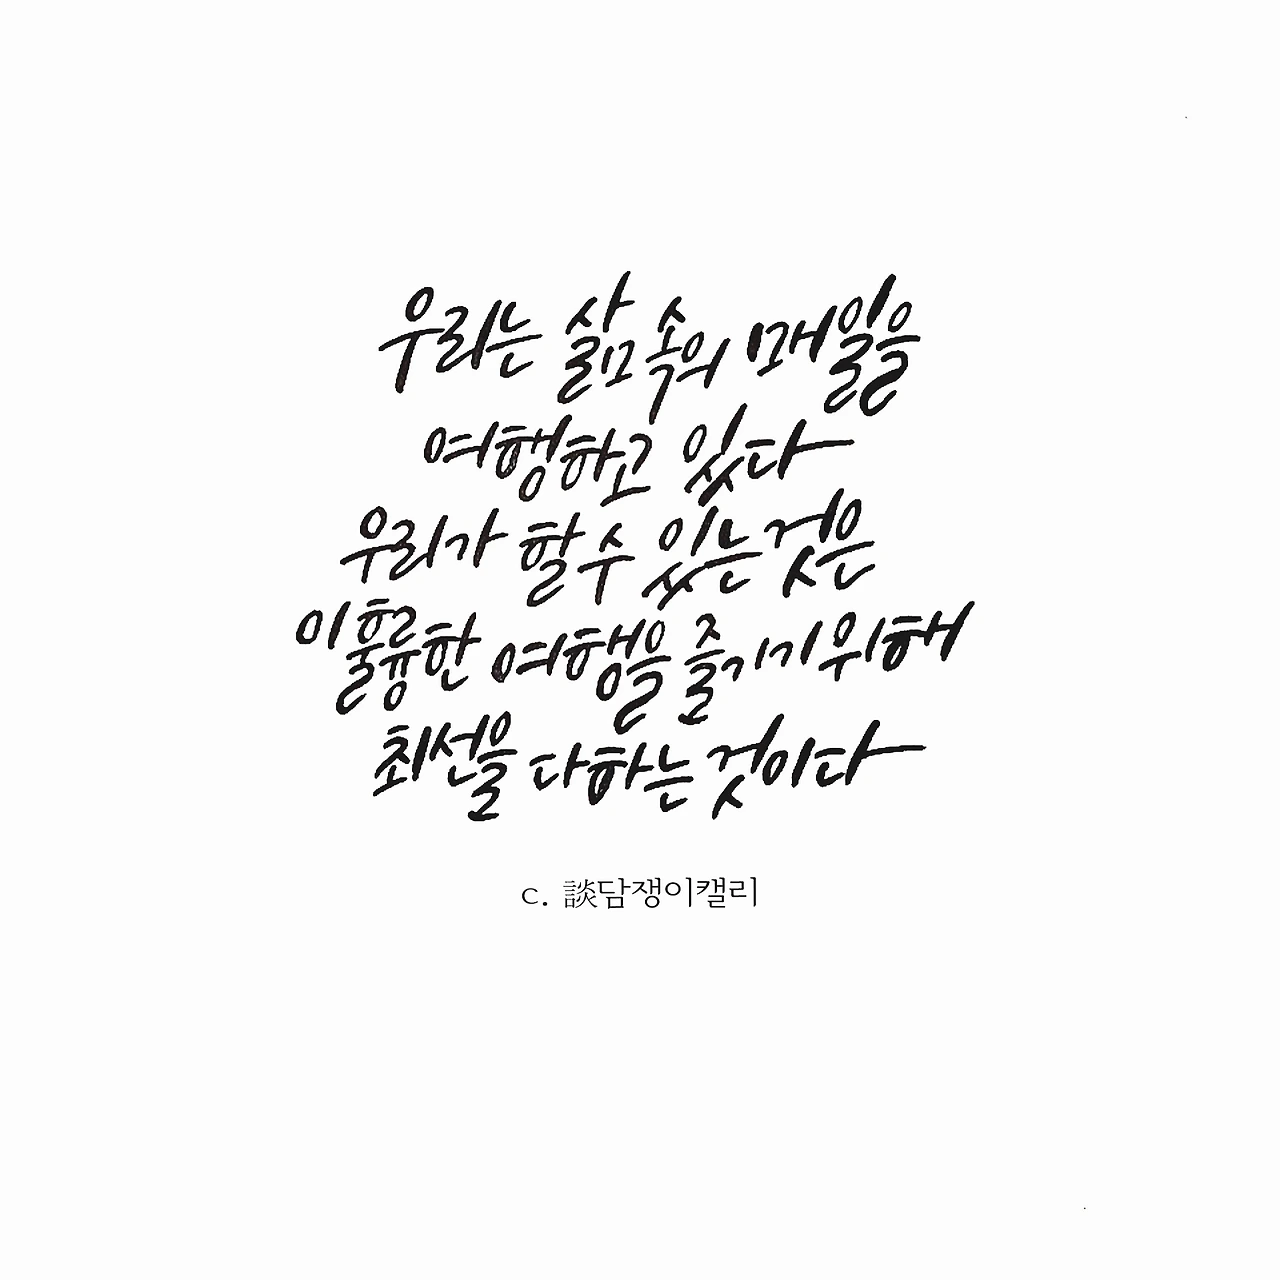 우리는 삶속의 매일을
여행하고 있다
우리가 할수 있는것은
이훌륭한 여행을 즐기기위해
최선을 다하는 것이다
c. 談담쟁이캘리